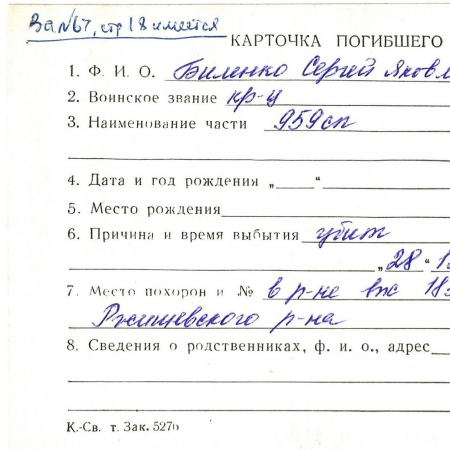 Вх №67, стр 18 имеется
КАРТОЧКА ПОГИБШЕГО
1. Ф. И. О. Биленко Сергей Яковл
2. Воинское звание кр-ц
3. Наименование части 959 сп
4. Дата и год рождения „ “
5. Место рождения
6. Причина и время выбытия убит
„28“ 1
7. Место похорон и № в р-не выс 18
Ржищевского р-на
8. Сведения о родственниках, ф. и. о., адрес
К.-Св. т. Зак. 527о